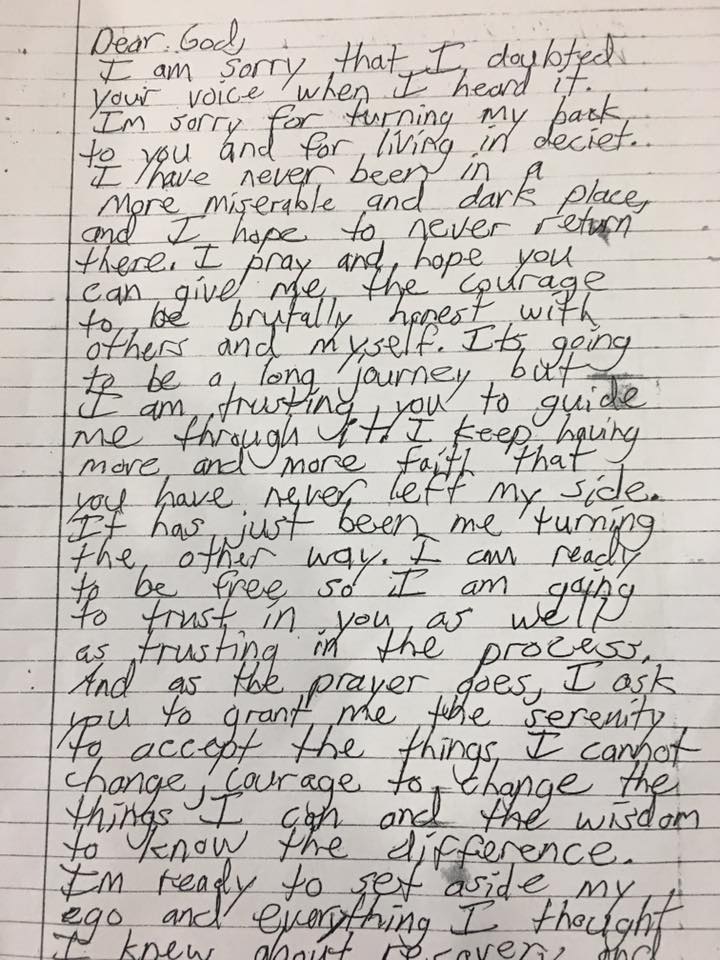 Dear God,
I am sorry that I doubted
your voice when I heard it.
Im sorry for turning my back
to you and for living in deciet.
I have never been in a
more miserable and dark place,
and I hope to never return
there. I pray and hope you
can give me the courage
to be brutally honest with
others and myself. Its going
to be a long journey but
I am trusting you to guide
me through it. I keep having
more and more faith that
you have never left my side.
It has just been me turning
the other way. I am ready
to be free so I am going
to trust in you as well
as trusting in the process.
And as the prayer goes, I ask
you to grant me the serenity
to accept the things I cannot
change, courage to change the
things I can and the wisdom
to know the difference.
Im ready to set aside my
ego and everything I thought
I knew about recovery and